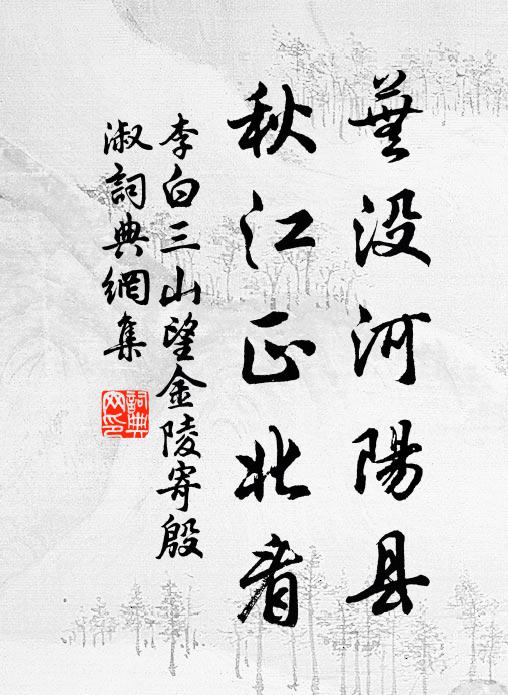 蕪没河陽县
秋江正北看
李白三山望金陵寄殷
淑詞典網集
詞典
网印